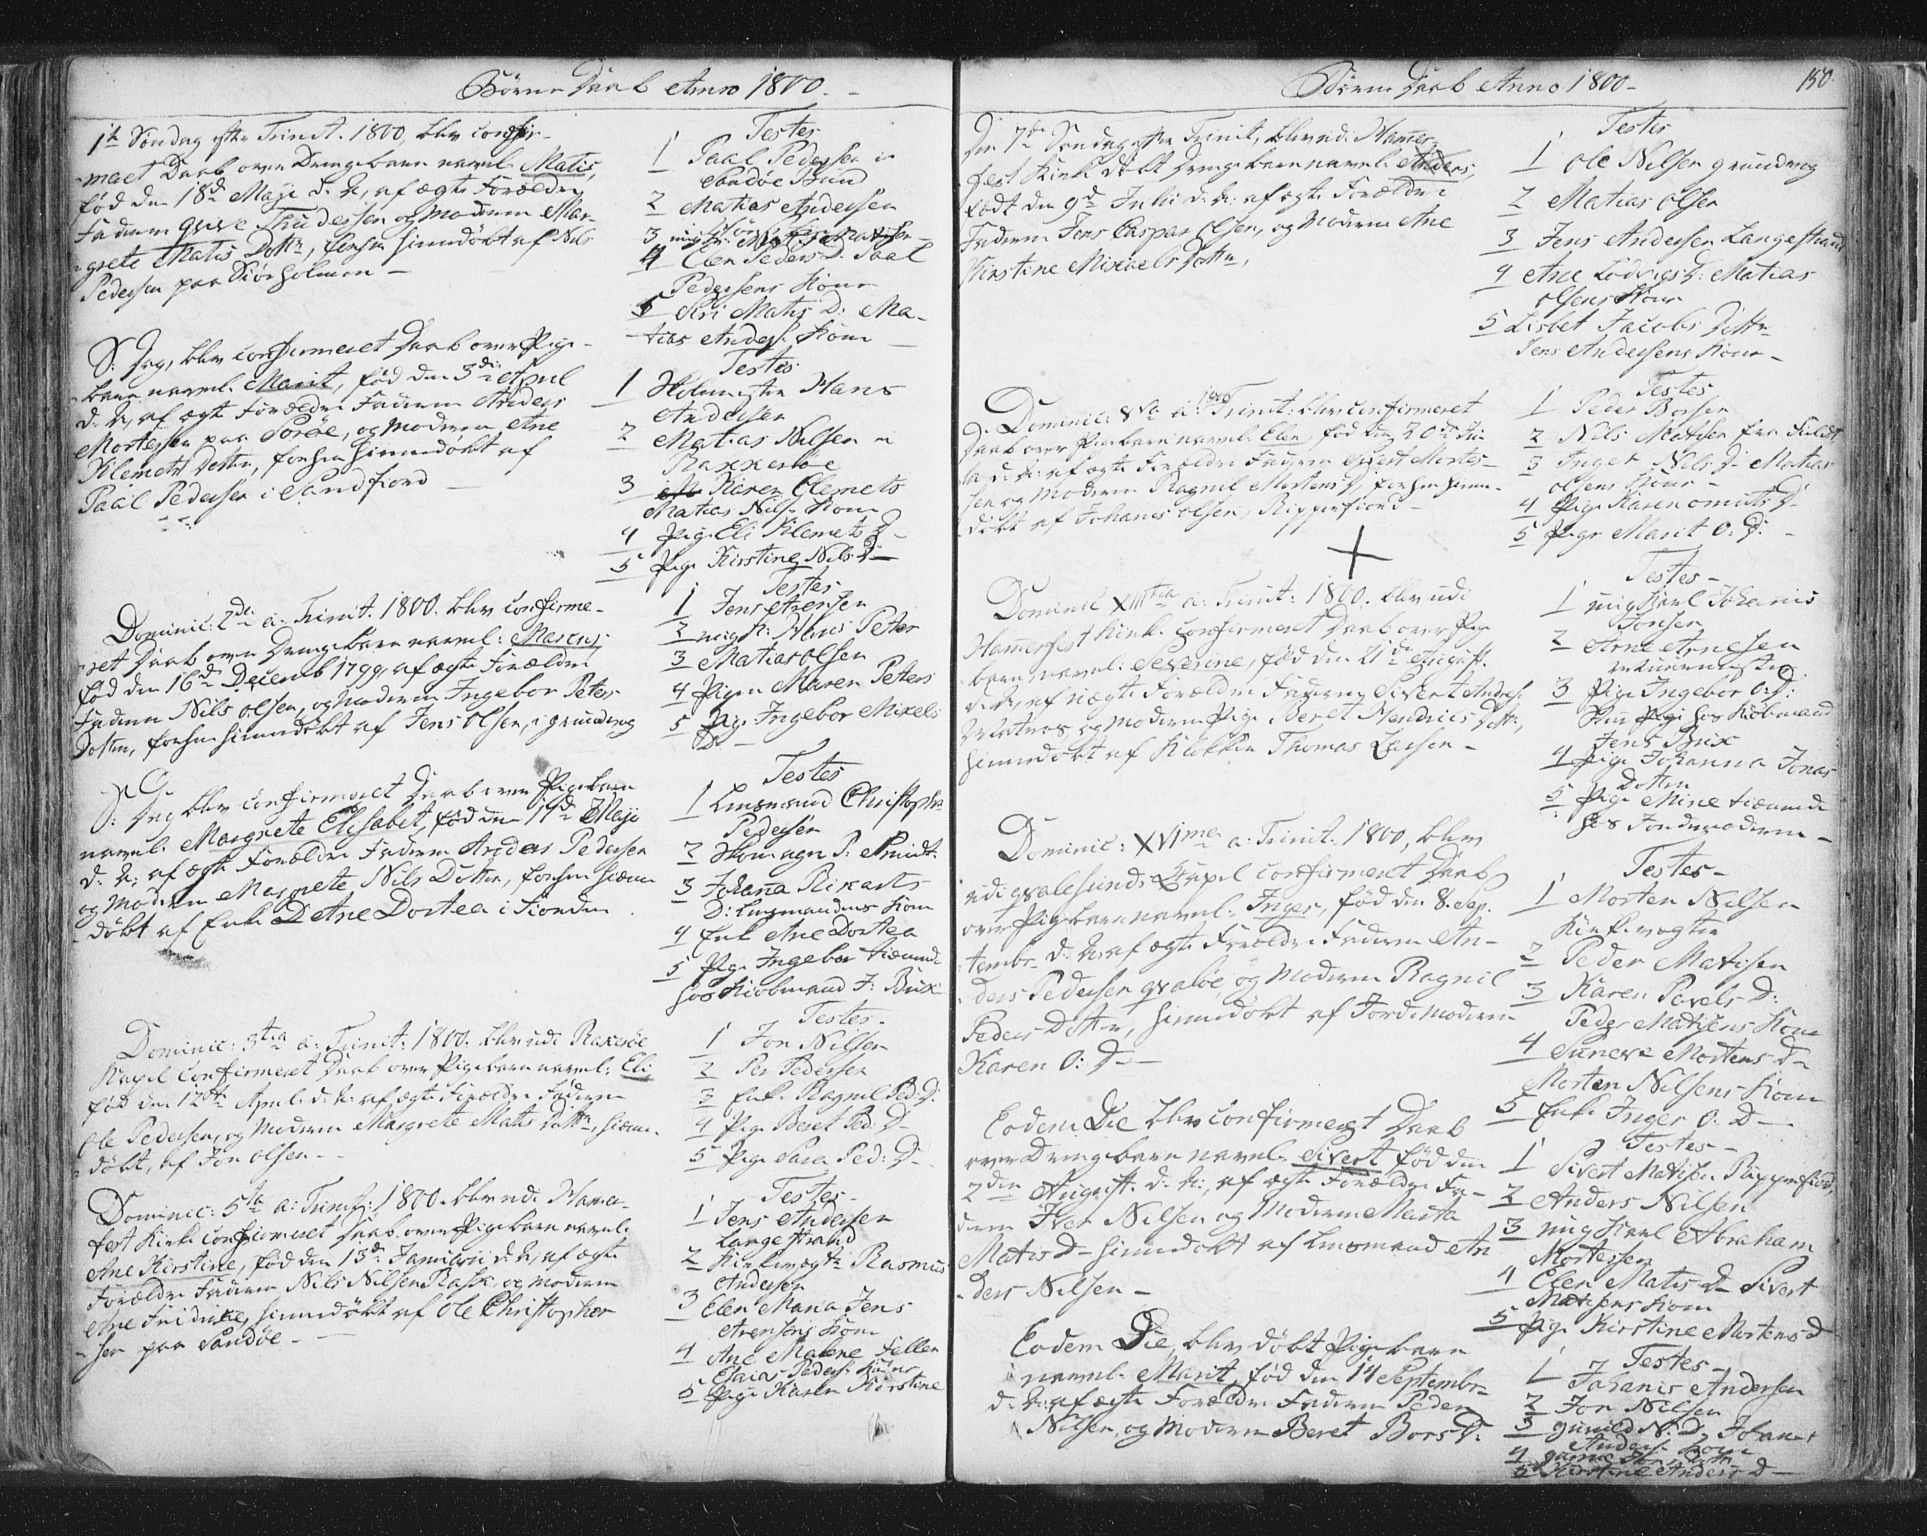 Børne Daab Anno 1800.
1te Søndag efter Trinit. 1800, blev confir-
meret Daab over Drengebarn navnl. Matis,
fød den 18de Maji d. A., af ægte Forældre
Faderen Thudessen og Moderen Mar-
grete Matis Dottr, forhen hiemdøbt af Nils
Pedersen paa Kiørholmen —
Testes
1 Paal Pedersen i
Sandøe Sund
2 Matias Andersen
3
4 Elen Peders D. Paal
Pedersens Kone
5 Siri Matis D: Ma-
tias Anders. Kone
S: Dag, blev confirmeret Daab over Pige-
barn navnl. Marit, fød den 3die April
d. A, af ægte Forældre Faderen Anders
Mortessen paa Sørøe, og Moderen Ane
Klemets Dotter, forhen hiemdøbt af
Paal Pedersen i Sandfiord —
Testes
1 Hans
Andersen
2 Matias Nilsen i
Raxxesøe
3 Karen Clemets
Matias Nils. Kone
4 Pige Eli Klemets D-
5 Pige Kirstine Nils. D—
Dominic: 2de a: Trinit. 1800. blev confirme-
ret Daab over Drengebarn navnl: Marcus,
fød den 16de Decemb 1799, af ægte Forældre
Faderen Nils Olsen, og Moderen Ingebor Peters
Dotter, forhen hiemdøbt af Jens Olsen, i grundvog
Testes
1 Jens Arensen
2 ungk: Hans Peter
3 Matias Olsen
4 Pigen Maren Peters
5 Pige Ingebor Mixels
D. —
S: Dag blev confirmeret Daab over Pigebarn
navnl. Margrete Elisabet, fød den 17de Maji
d. A; af ægte Forældre Faderen Anders Pedersen
og Moderen Margrete Nils Dotter, forhen hiem-
døbt af Enke Ane Dortea i
Testes
1 Lensmand Christopher
Pedersen
2 P: Smidt.
3 Johana Rikarts
D: Lensmandens Kone
4 Enk Ane Dortea
5 Pige Ingebor tienende
hos Kiøbmand J: Brix
Dominic: 3tia a: Trinit: 1800. blev udi Raxesøe
Kapel confirmeret Daab over Pigebarn navnl: Eli
fød den 12te April. d. A: af ægte Forældre Faderen
Ole Pedersen, og Moderen Margrete Matis Dottr, hiem-
døbt, af Jon Olsen —
Testes.
1 Jon Nilsen
2 Per Pedersen
3 Enk. Ragnel Ped: D:
4 Pige Beret Ped: D-
5 Pige Sara Ped: D-
Dominic: 5ta a: Trinit: 1800. blev udi Hamer-
fest Kirke confirmeret Daab over Pigebarn navnl.
Ane Kirstine, fød den 13de Januarii d. A; af ægte
Forældre Faderen Nils Nilsen Rask og Moderen
Ane hiemdøbt af Ole Christopher
sen paa Sandøe —
Testes —
1 Jens Andersen
Langestrand
2 Kirkevægter Rasmus
Andersen
3 Elen Maria Jens
Arensens Kone
4 Ane Malene
Esaias Peders. Kone
5 Pige Karen Kirstine
Børne Daab Anno 1800 —
150.
Den 7de Søndag efter Trinit, blev udi Hamer
fest Kirke døbt Drengebarn navnl. Anders,
født den 9de Julii d: A: af ægte Forældre
Faderen Jens Caspar Olsen, og Moderen Ane
Kirstine Mikaels Dottr,
Testes
1 Ole Nilsen grundvog
2 Matias Olsen
3 Jens Andersen Langestrand
4 Ane Lodvigs D: Matias
Olsens Kone
5 Lisbet Jacobs Dottr
Jens Andersens Kone —
Dominic: 8va a: Trinit: blev confirmeret
Daab over Pigebarn navnl. Elen, fød den 20de Ju-
lii d: A: af ægte Forældre Faderen Mortes-
sen og Moderen Ragnel Mortens D, forhen hiem-
døbt af Johanis Olsen, Ripperfiord —
Testes
1 Peder Borsen
2 Nils Matisen fra
3 Inger Nils D- Matias
Olsens Kone —
4 Pige Karen D-
5 Pige Marit O: D: —
Dominic XIIItia a: Trinit: 1800. blev udi
Hamerfest Kirke confirmeret Daab over Pige
barn, navnl: Severine, fød den 21de August.
d. A, af uægte Forældre Faderen Sivert Anders.
og Moderen Pige Beret Hendrics Dottr,
hiemdøbt af Klokker Thomas Larsen —
Testes —
1 ungkarl Johanis
Jonsen
2 Arne Arnesen
3 Pige Ingebor O: D:
hos Kiøbmand
Jens Brix
4 Pige Johanna Jonas
Dotter
5 Pige Mine tienende
hos Jordemoderen —
Dominic: XVIma a: Trinit. 1800, blev
udi qvalesunds Kapel confirmeret Daab
over Pigebarn navnl. Inger, fød den 8. Sep.
tembr. d: A: af ægte Forældre Faderen An-
ders Pedersen qvaløe, og Moderen Ragnil
Peders Dotter, hiemdøbt af Jordemoderen
Karen O: D—
Testes —
1 Morten Nilsen
Kirkevægter
2 Peder Matisen
3 Karen Povels D:
Peder Matisens Kone
4 Suneva Mortens D-
Morten Nilsens Kone
5 Enk: Inger O: D—
Eodem Die blev confirmeret Daab
over Drengebarn navnl. Sivert, fød den
2den August: d. A:, af ægte Forældre Fa-
deren Iver Nilsen og Moderen Marta
Matis D- hiemdøbt af Lensmand An
ders Nilsen —
Testes —
1 Sivert Matisen Ripperfiord,
2 Anders Nilsen
3 ungkarl Abraham
Mortesen
4 Elen Matis D- Sivert
Matisens Kone
5 Pige Kirstine Mortens D
Eodem Die, blev døbt Pigebarn
navnl. Marit, fød den 14 Septembr.
d. A: af ægte Forældre Faderen Peder
Nilsen, og Moderen Beret Bors D:
Testes —
1 Johanis Andersen
2 Jon Nilsen
3 gunild N: D, Johanes
Anders. Kone
4
5 Kirstine Anders D —